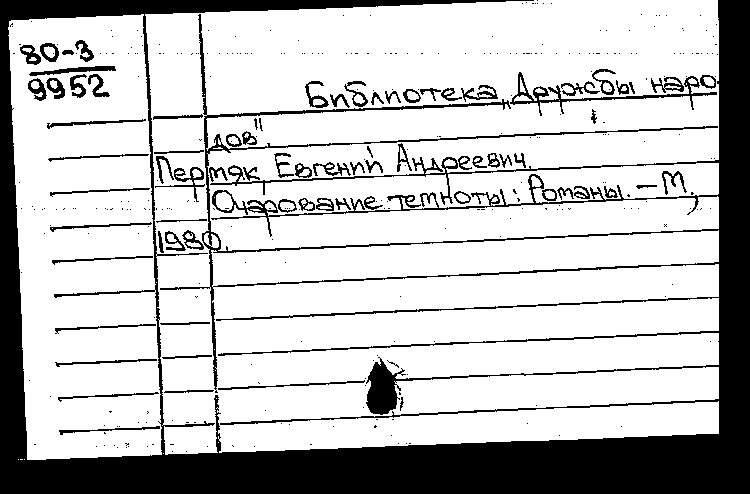 80-3
9952
Библиотека „Дружбы наро-
дов".
Пермяк, Евгений Андреевич.
Очарование темноты: Романы. - М.,
1980.